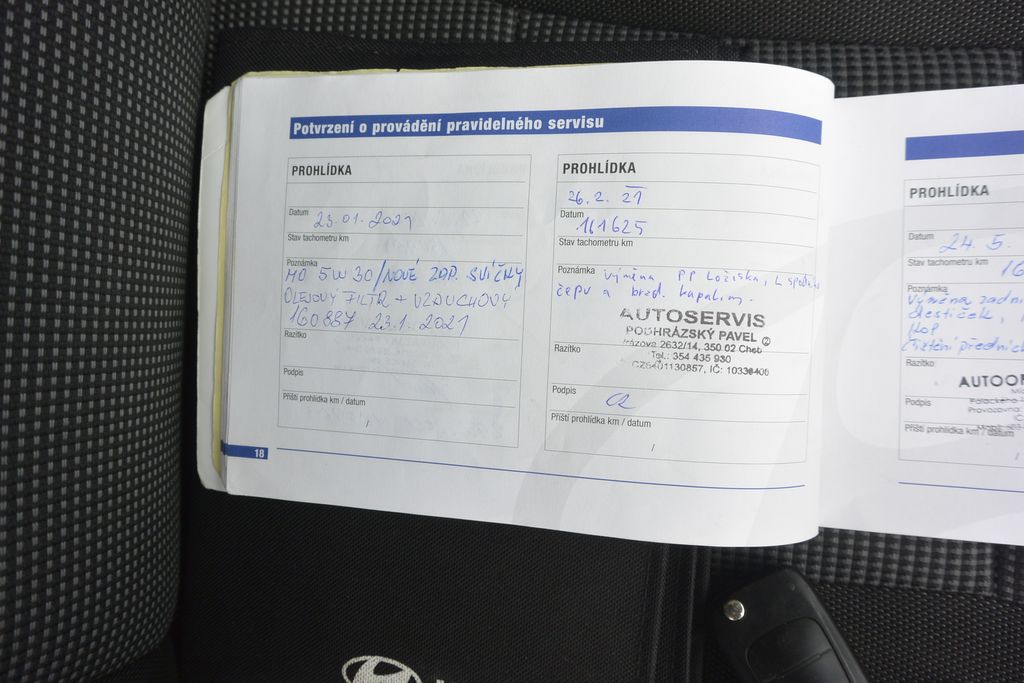 Potvrzení o provádění pravidelného servisu
PROHLÍDKA
Datum 23.01.2021
Stav tachometru km
Poznámka
MO 5W30/NOVÉ ZAP. SVÍČKY
OLEJOVÝ FILTR + VZDUCHOVÝ
160887 23.1.2021
Razítko
Podpis
Příští prohlídka km / datum
/
18
PROHLÍDKA
26. 2. 21
Datum
161625
Stav tachometru km
Poznámka Výměna PP Ložiska, L
čepu a brzd. kapaliny.
AUTOSERVIS
PODHRÁZSKÝ PAVEL 2
2632/14, 350 02 Cheb
Tel.: 354 435 930
CZ6401130857, IČ: 10330400
Razítko
Podpis
Příští prohlídka km / datum
/
PROHLÍDKA
Datum 24. 5.
Stav tachometru km 16
Poznámka
Výměna zadní
destiček,
Čištění předních
Razítko
Podpis
Příští prohlídka km / datum
/